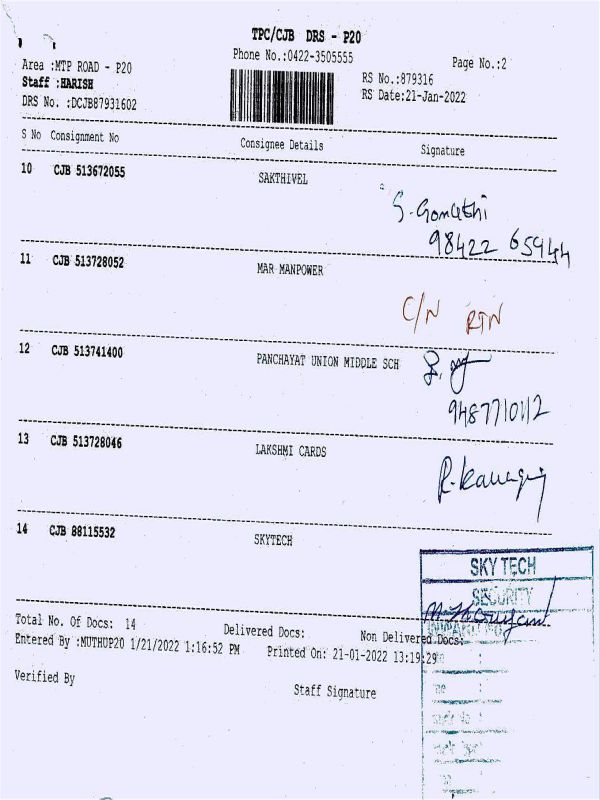 TPC/CJB DRS - P20
Phone No.:0422-3505555
Page No.:2
Area :MTP ROAD - P20
RS No.:879316
Staff :HARISH
RS Date:21-Jan-2022
DRS No. :DCJB87931602
S No Consignment No Consignee Details Signature
10 CJB 513672055 SAKTHIVEL
S. Gomathi
98422 65944
11 CJB 513728052 MAR MANPOWER
C/N RTN
12 CJB 513741400 PANCHAYAT UNION MIDDLE SCH
9487710112
13 CJB 513728046 LAKSHMI CARDS
14 CJB 88115532 SKYTECH
SKY TECH
SECURITY
Total No. Of Docs: 14 Delivered Docs: Non Delivered Docs:
Entered By :MUTHUP20 1/21/2022 1:16:52 PM Printed On: 21-01-2022 13:19:29
Verified By Staff Signature